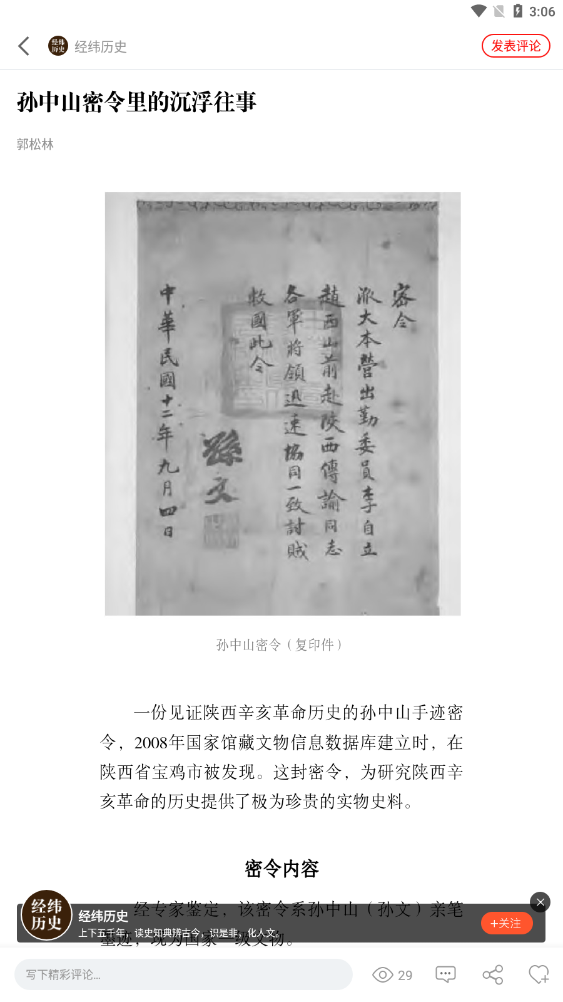 3:06
经纬历史
发表评论
孙中山密令里的沉浮往事
郭松林
密令
派大本營出勤委員李自立
趙西山前赴陝西傳諭同志
各軍將領迅速協同一致討賊
救國此令
孫文
中華民國十二年九月四日
孙中山密令（复印件）
一份见证陕西辛亥革命历史的孙中山手迹密
令，2008年国家馆藏文物信息数据库建立时，在
陕西省宝鸡市被发现。这封密令，为研究陕西辛
亥革命的历史提供了极为珍贵的实物史料。
密令内容
经专家鉴定，该密令系孙中山（孙文）亲笔
墨迹，现为国家一级文物。
经纬历史
经纬历史
上下五千年，读史知典辨古今，识是非，化人文。
+关注
写下精彩评论...
29